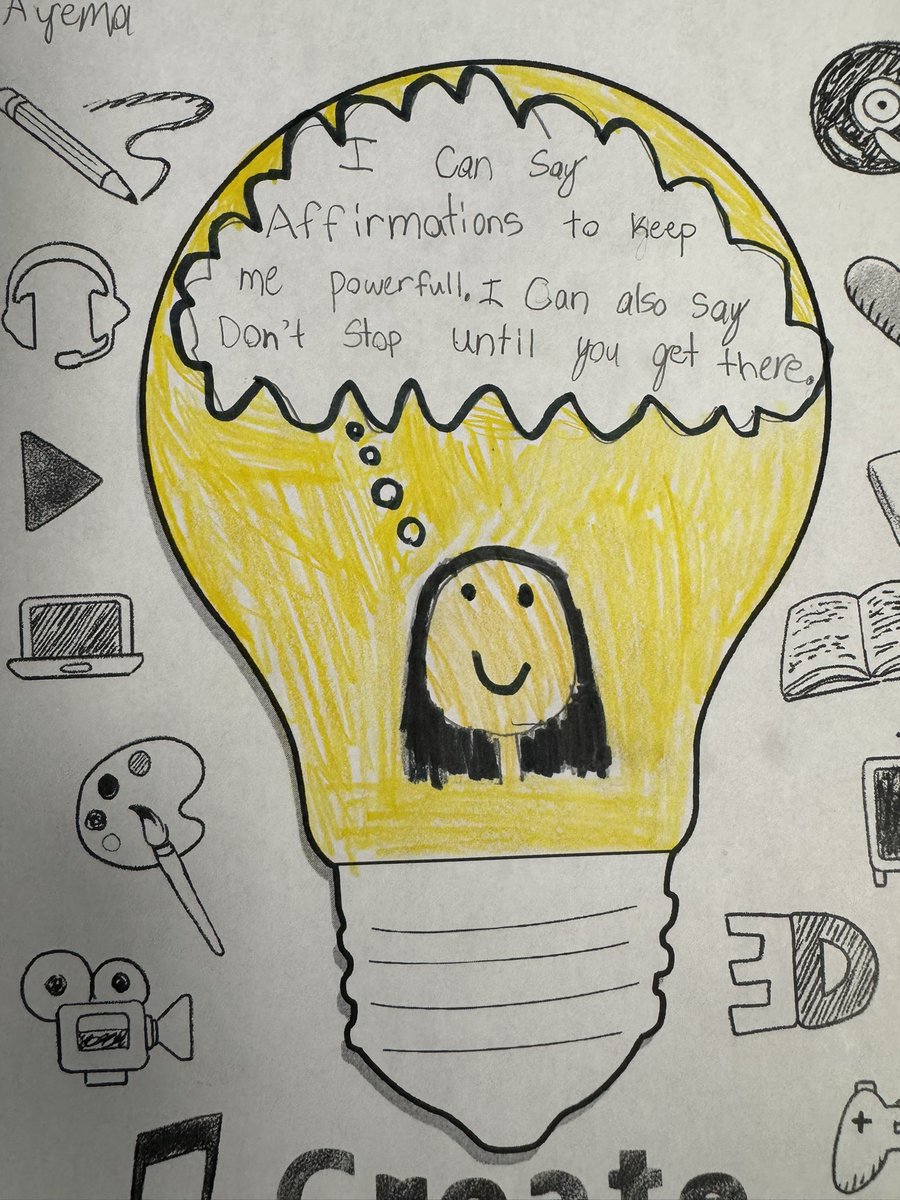 Ayema
I Can Say
Affirmations to keep
me powerfull. I Can also say
Don't Stop until you get there.
3D
Create